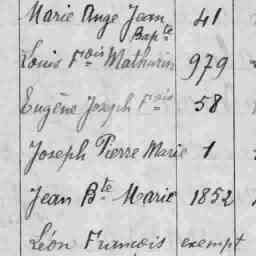 Marie Ange Jean 41
Bapte
Louis Fois Mathurin 979
Eugène Joseph Fois 58
Joseph Pierre Marie 1
Jean Bte Marie 1852
Léon François exempt